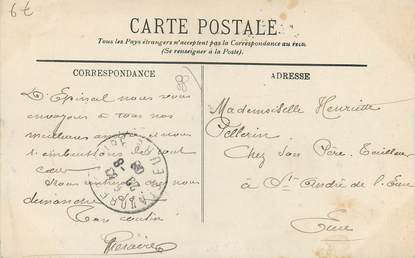 6€
CARTE POSTALE
Tous les Pays étrangers n'acceptent pas la Correspondance au recto
(Se renseigner à la Poste).
CORRESPONDANCE
ADRESSE
D'Epinal nous vous
envoyons à tous nos
meilleures amitiés et nous
t'embrassons de tout
cœur
nous
dimanche
Ton cousin
Mademoiselle Henriette
Pellerin
Chez son Père. Tailleur
à St André de l'Eure
Eure